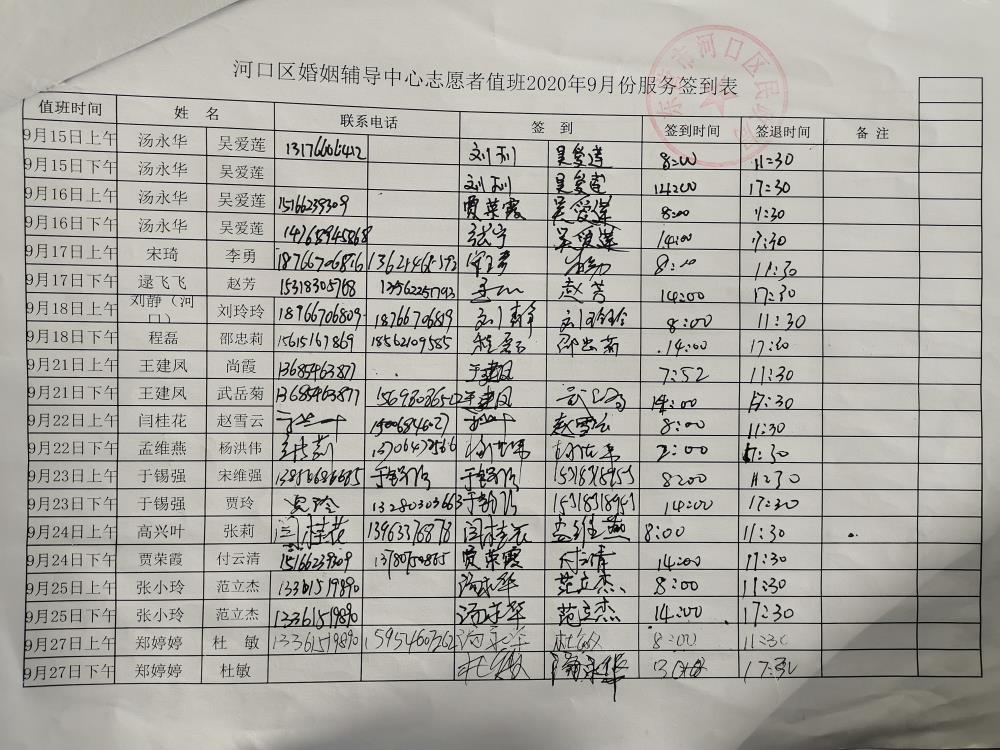 河口区婚姻辅导中心志愿者值班2020年9月份服务签到表
值班时间 姓 名 联系电话 签 到 签到时间 签退时间 备 注
9月15日上午 汤永华 吴爱莲 刘利 吴爱莲 8:00 11:30
9月15日下午 汤永华 吴爱莲 刘利 吴爱莲 14:00 17:30
9月16日上午 汤永华 吴爱莲 15166239309 贾荣霞 吴爱莲 8:00 11:30
9月16日下午 汤永华 吴爱莲 张宁 吴爱莲 14:00 17:30
9月17日上午 宋琦 李勇 18766706876 11:30
9月17日下午 逯飞飞 赵芳 15318305768 赵芳 14:00 17:30
9月18日上午 刘静（河口） 刘玲玲 18766706809 18766706819 刘静 刘玲玲 8:00 11:30
9月18日下午 程磊 邵忠莉 15615167869 18562109585 程磊 邵忠莉 14:00 17:30
9月21日上午 王建凤 尚霞 13685463877 王建凤 7:52 11:30
9月21日下午 王建凤 武岳菊 13685463877 王建凤 14:00 17:30
9月22日上午 闫桂花 赵雪云 赵雪云 8:00 11:30
9月22日下午 孟维燕 杨洪伟 2:00 17:30
9月23日上午 于锡强 宋维强 8:00 11:30
9月23日下午 于锡强 贾玲 贾玲 13280302663 14:00 17:30
9月24日上午 高兴叶 张莉 闫桂花 13963376878 闫桂花 孟维燕 8:00 11:30
9月24日下午 贾荣霞 付云清 15166239309 贾荣霞 付云清 14:00 17:30
9月25日上午 张小玲 范立杰 13361519890 汤永华 范立杰 8:00 11:30
9月25日下午 张小玲 范立杰 13361519890 汤永华 范立杰 14:00 17:30
9月27日上午 郑婷婷 杜 敏 13361519890 15954607262 汤永华 杜敏 8:00 11:30
9月27日下午 郑婷婷 杜敏 杜敏 汤永华 17:30